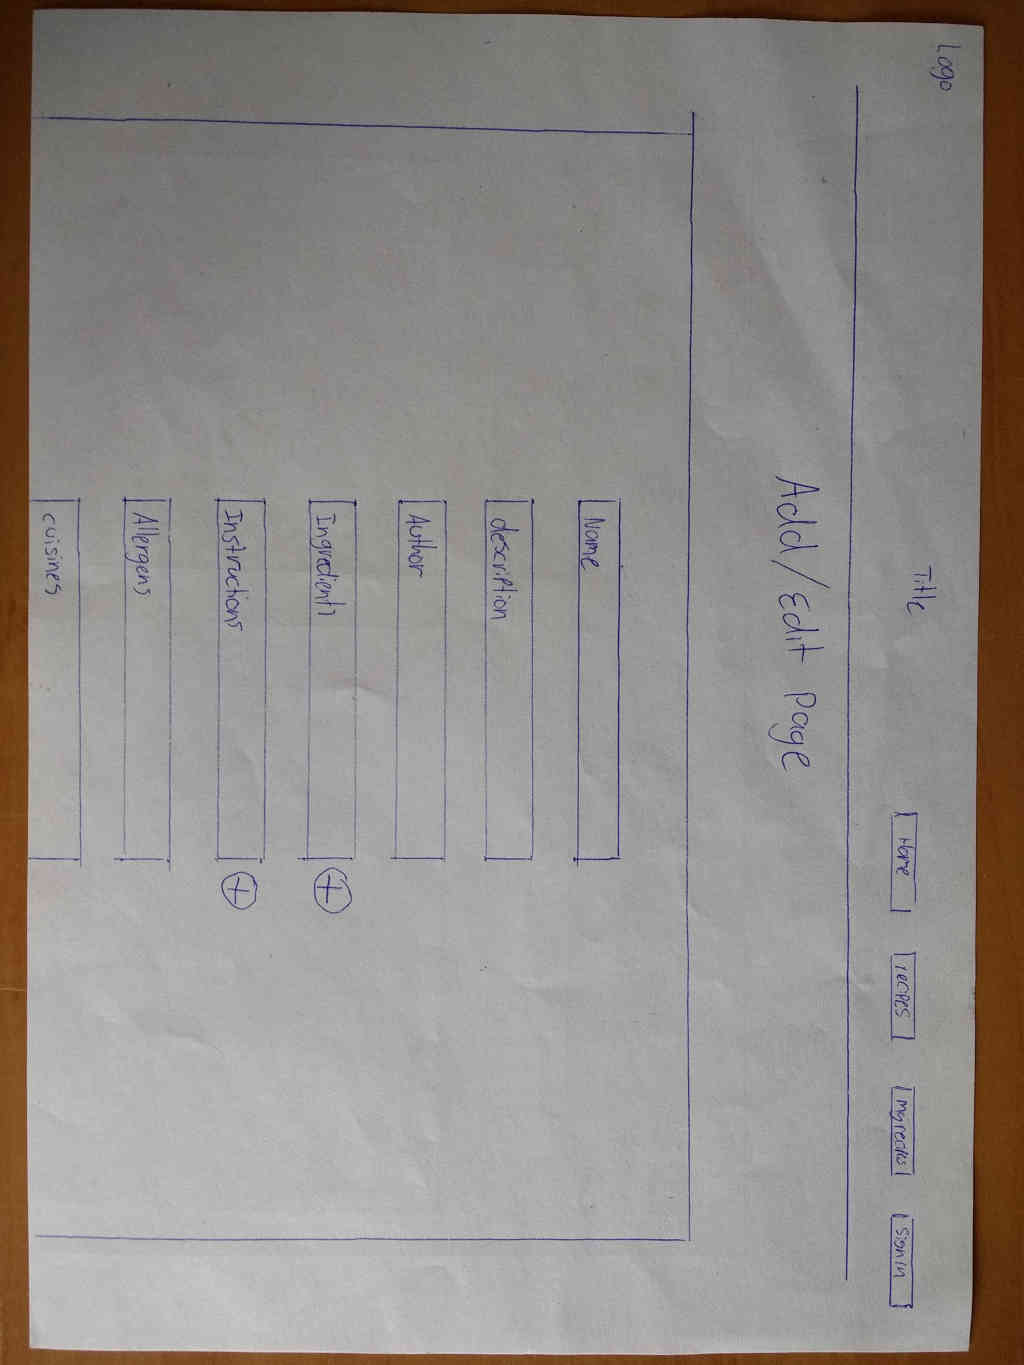 Logo
Title
Home
recipes
Sign In
Add/Edit Page
Name
description
Author
Ingredient1
Instructions
Allergens
cuisines